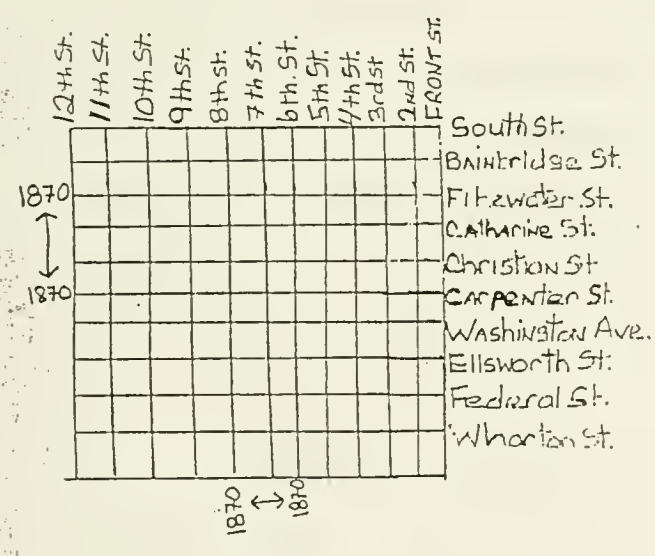 12th St.
11th St.
10th St.
9th St.
8th St.
7th St.
6th. St.
5th St.
4th St.
3rd St
2nd St.
FRONT ST.
South St.
BAiNbridge St.
Fitzwater St.
CAthAriNe St.
Christian St
CArpenter St.
WAshiNgton Ave.
Ellsworth St.
Federal St.
Wharton St.
1870
1870
1870
1870